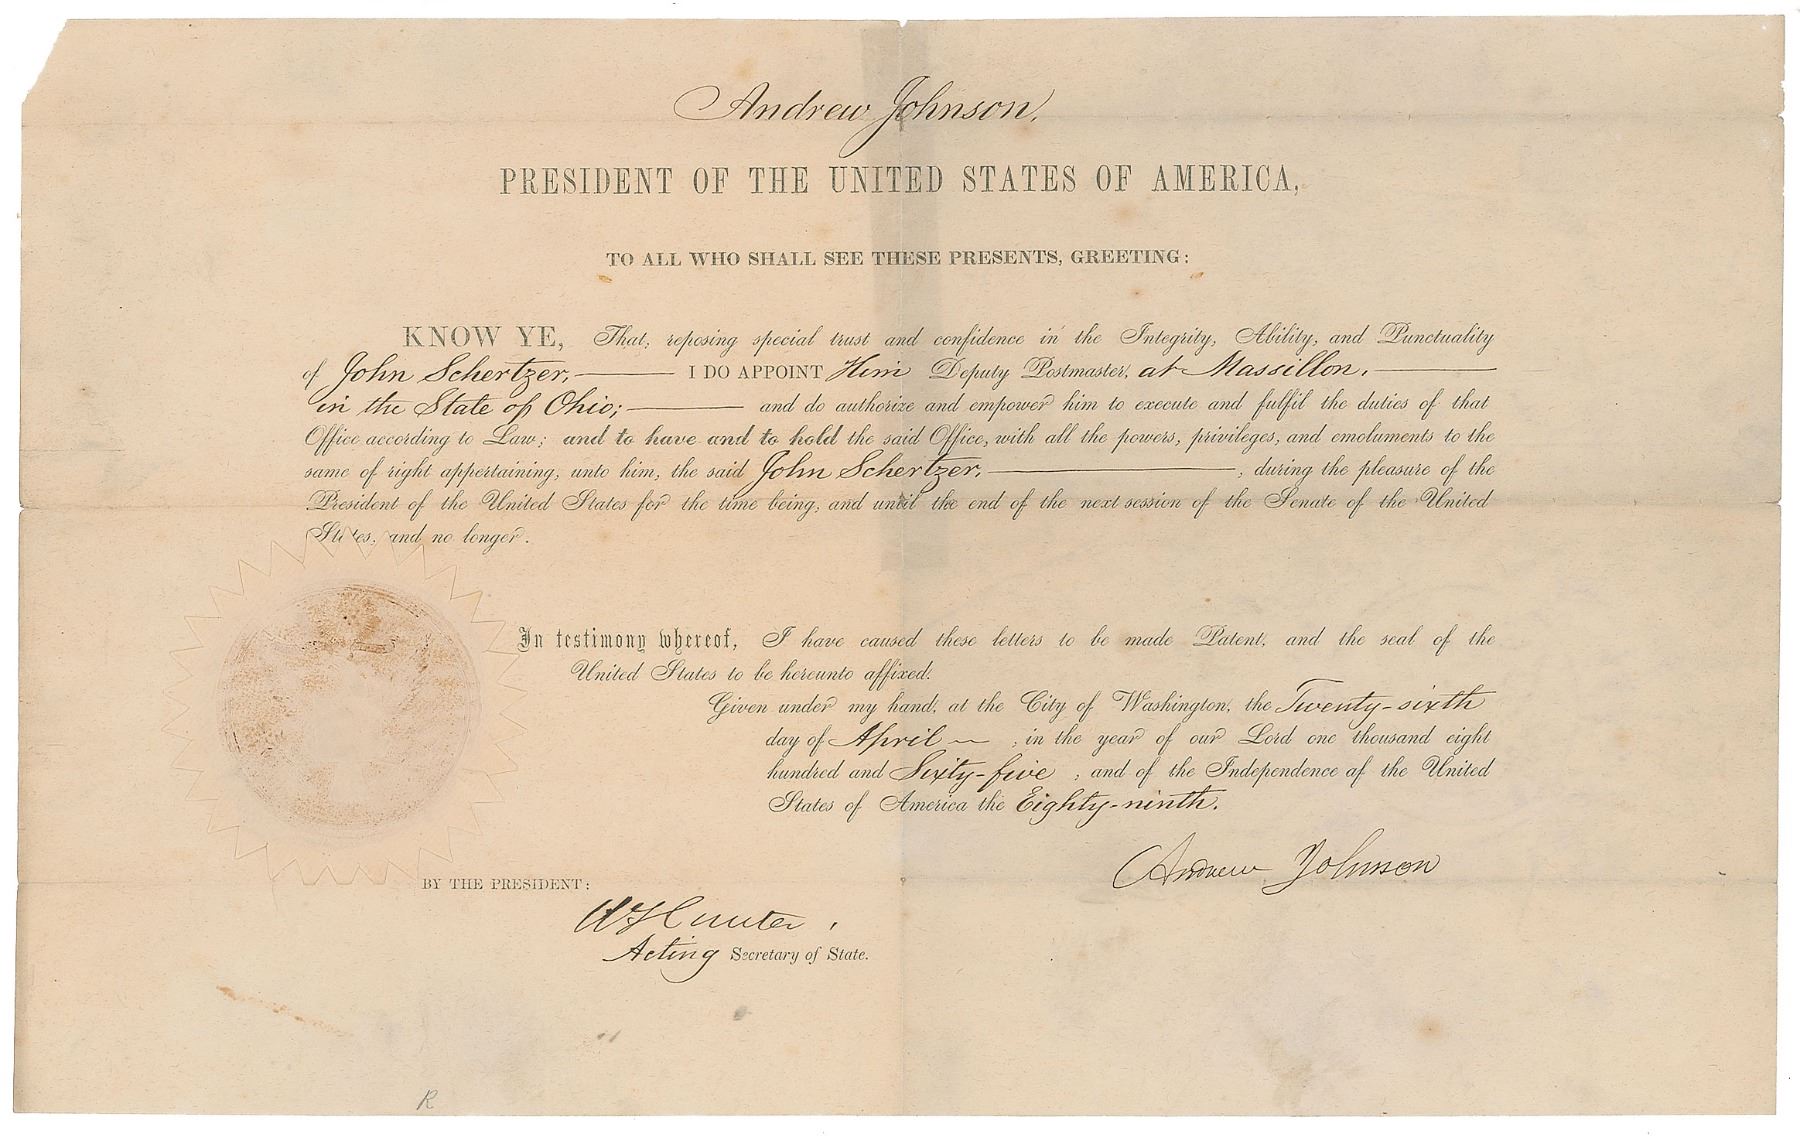 Andrew Johnson,
PRESIDENT OF THE UNITED STATES OF AMERICA,
TO ALL WHO SHALL SEE THESE PRESENTS, GREETING:
KNOW YE, That, reposing special trust and confidence in the Integrity, Ability, and Punctuality
of John Schertzer, I DO APPOINT Him Deputy Postmaster, at Massillon,
in the State of Ohio; and do authorize and empower him to execute and fulfil the duties of that
Office according to Law; and to have and to hold the said Office, with all the powers, privileges, and emoluments to the
same of right appertaining, unto him, the said John Schertzer, , during the pleasure of the
President of the United States for the time being, and until the end of the next session of the Senate of the United
States, and no longer.
In testimony whereof, I have caused these letters to be made Patent, and the seal of the
United States to be hereunto affixed.
Given under my hand, at the City of Washington, the Twenty-sixth
day of April , in the year of our Lord one thousand eight
hundred and Sixty-five , and of the Independence af the United
States of America the Eighty-ninth.
Andrew Johnson
BY THE PRESIDENT:
W Hunter,
Acting Secretary of State.
R